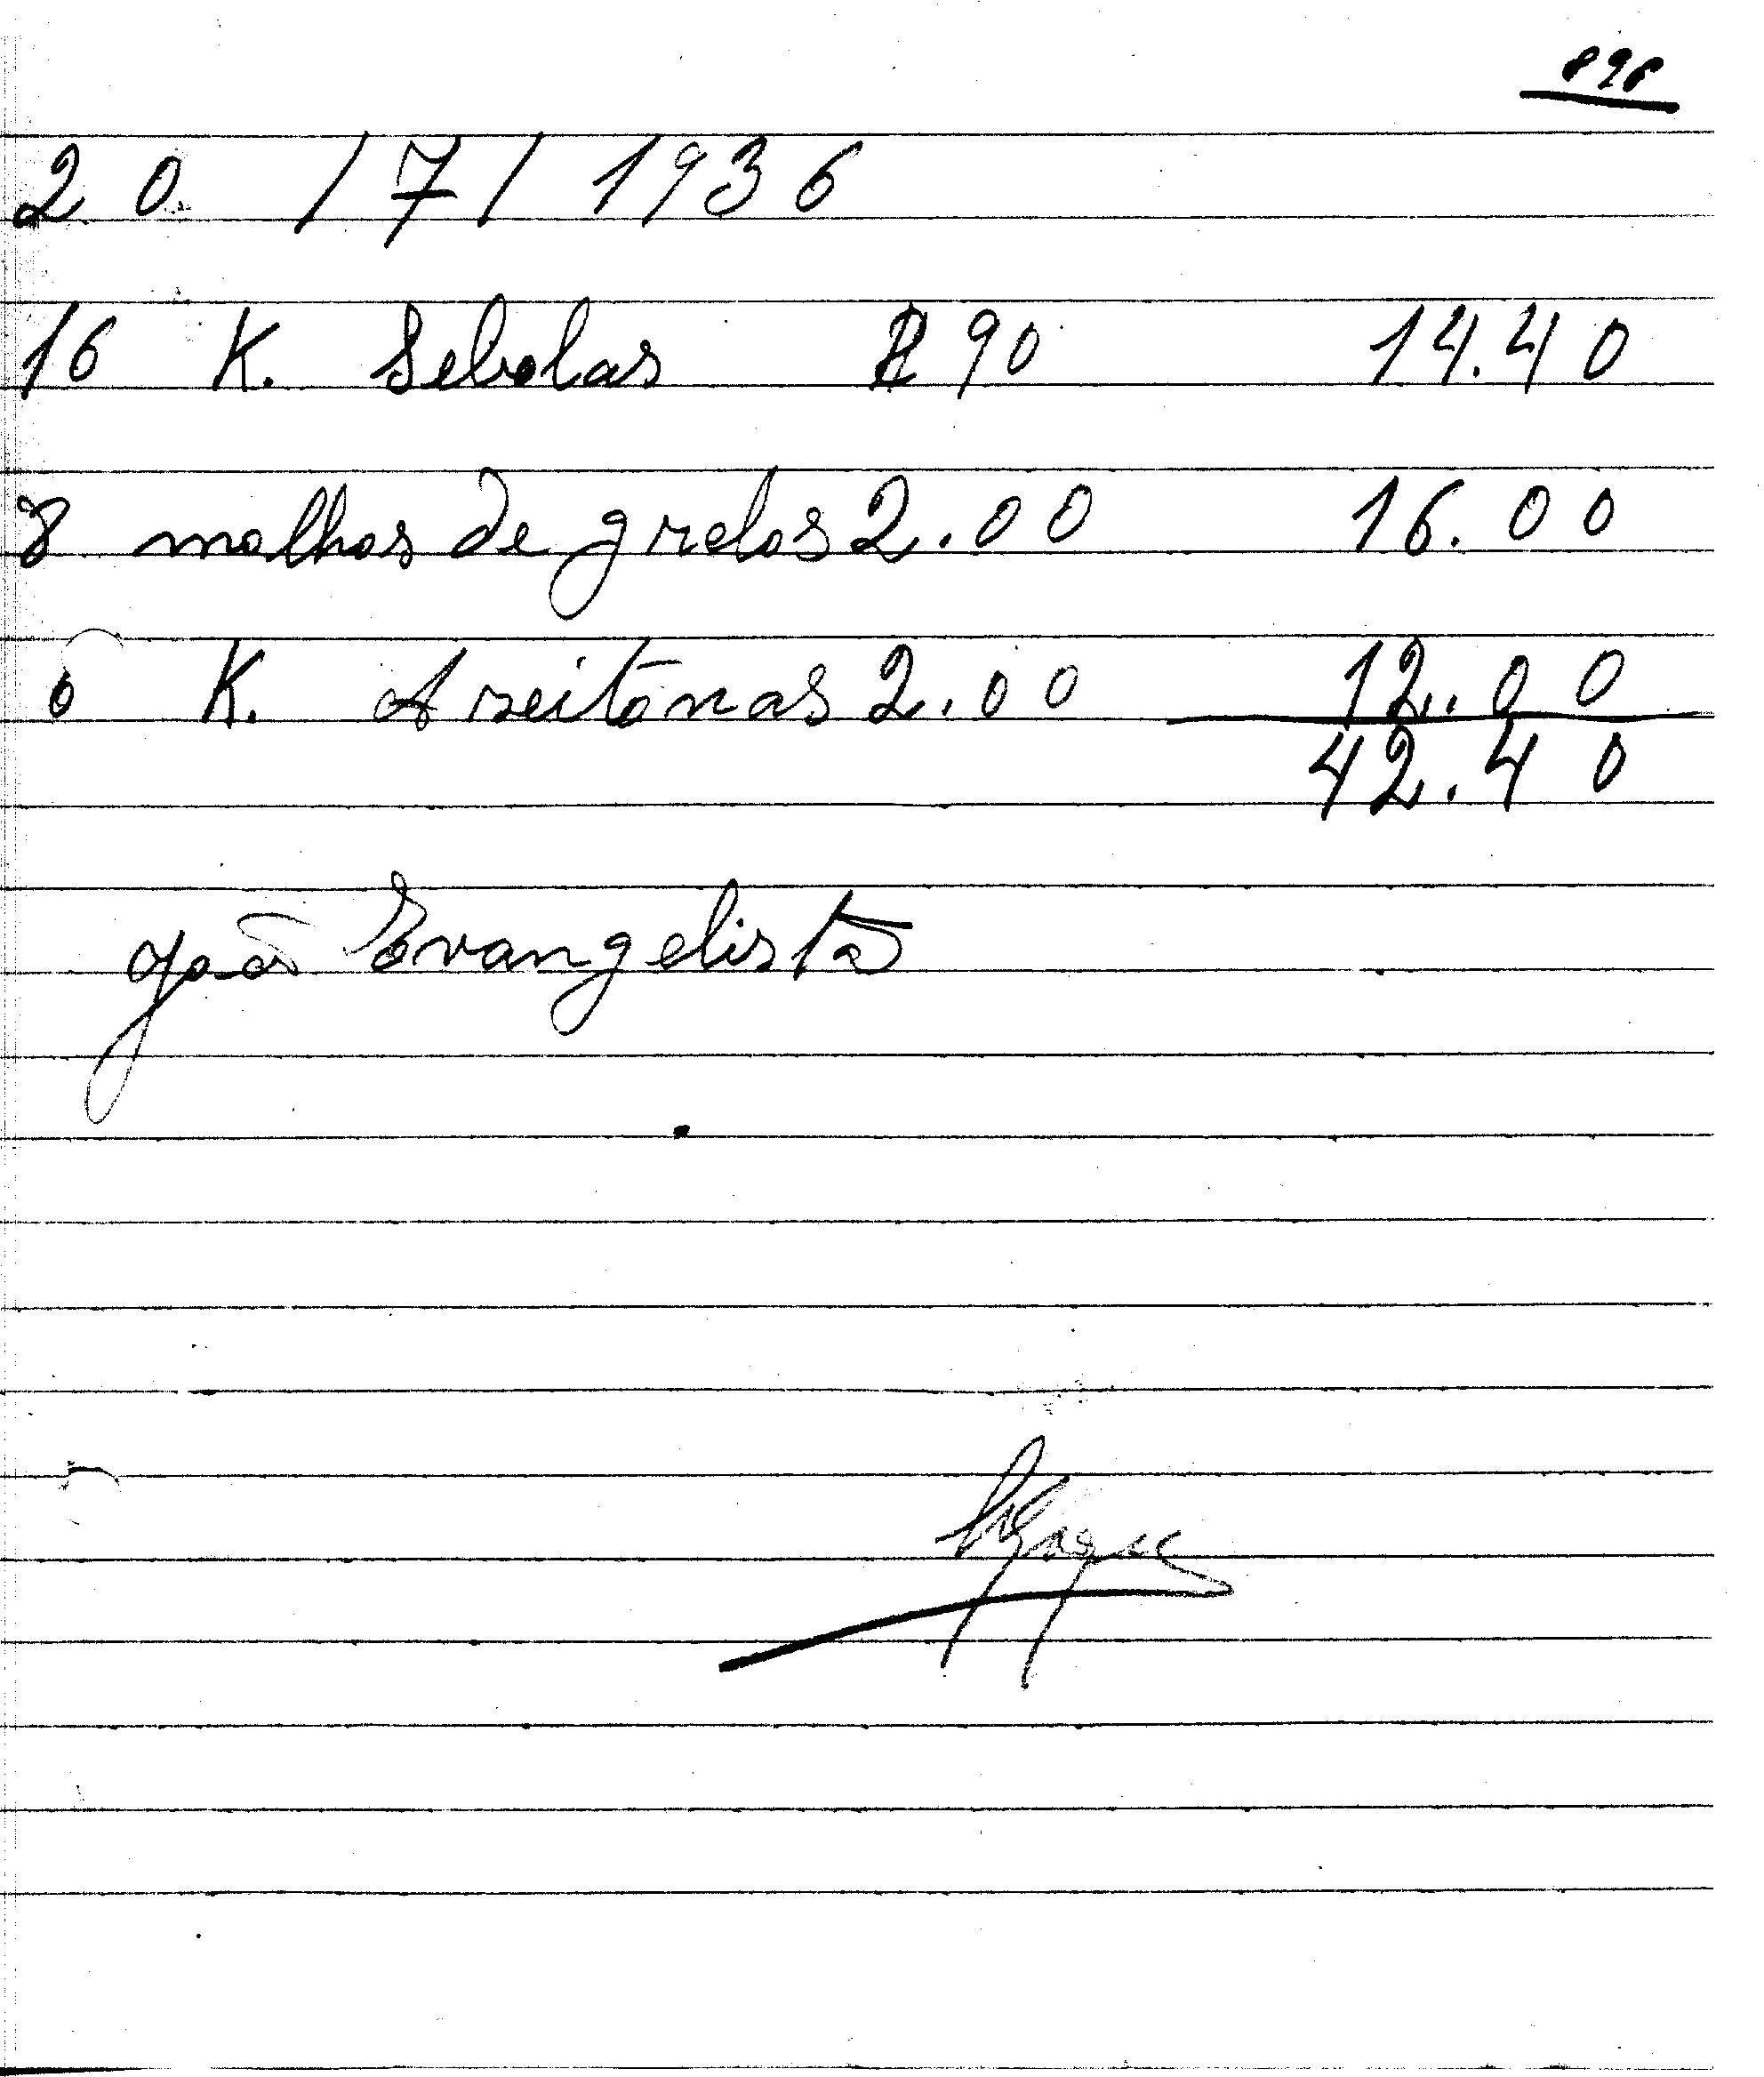 898
20/7/1936
16 K. Sebolas 90 14.40
8 molhos de grelos 2.00 16.00
6 K. Azeitonas 2.00 12.00
42.40
João Evangelista